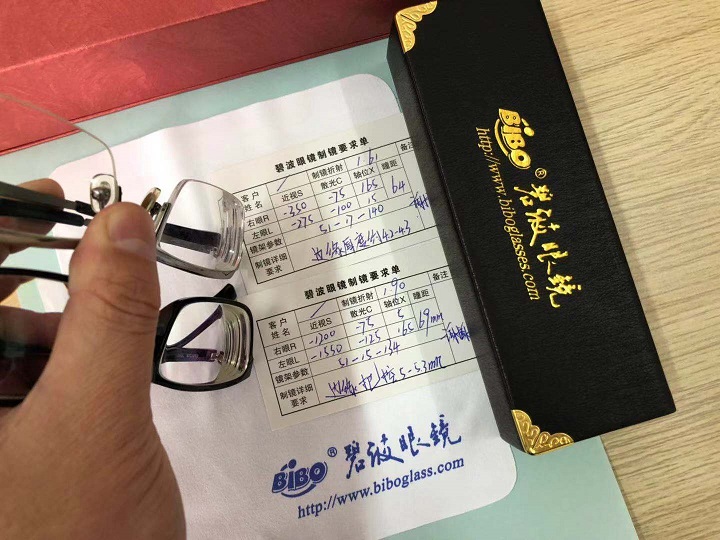 碧波眼镜制镜要求单
客户姓名 / 制镜折射 1.61 备注
近视S 散光C 轴位X 瞳距
右眼R -350 -75 165 64
左眼L -275 -100 15
镜架参数 51-17-140
制镜详细要求 边缘厚度约4.2-4.3
碧波眼镜制镜要求单
客户姓名 / 制镜折射 1.90 备注
近视S 散光C 轴位X 瞳距
右眼R -1200 -75 5 69mm
左眼L -1550 -125 165
镜架参数 51-15-134
制镜详细要求 边缘 控 5-5.3mm
BiBO® 碧波眼镜
http://www.biboglass.com
BiBO® 碧波眼镜
http://www.biboglasses.com